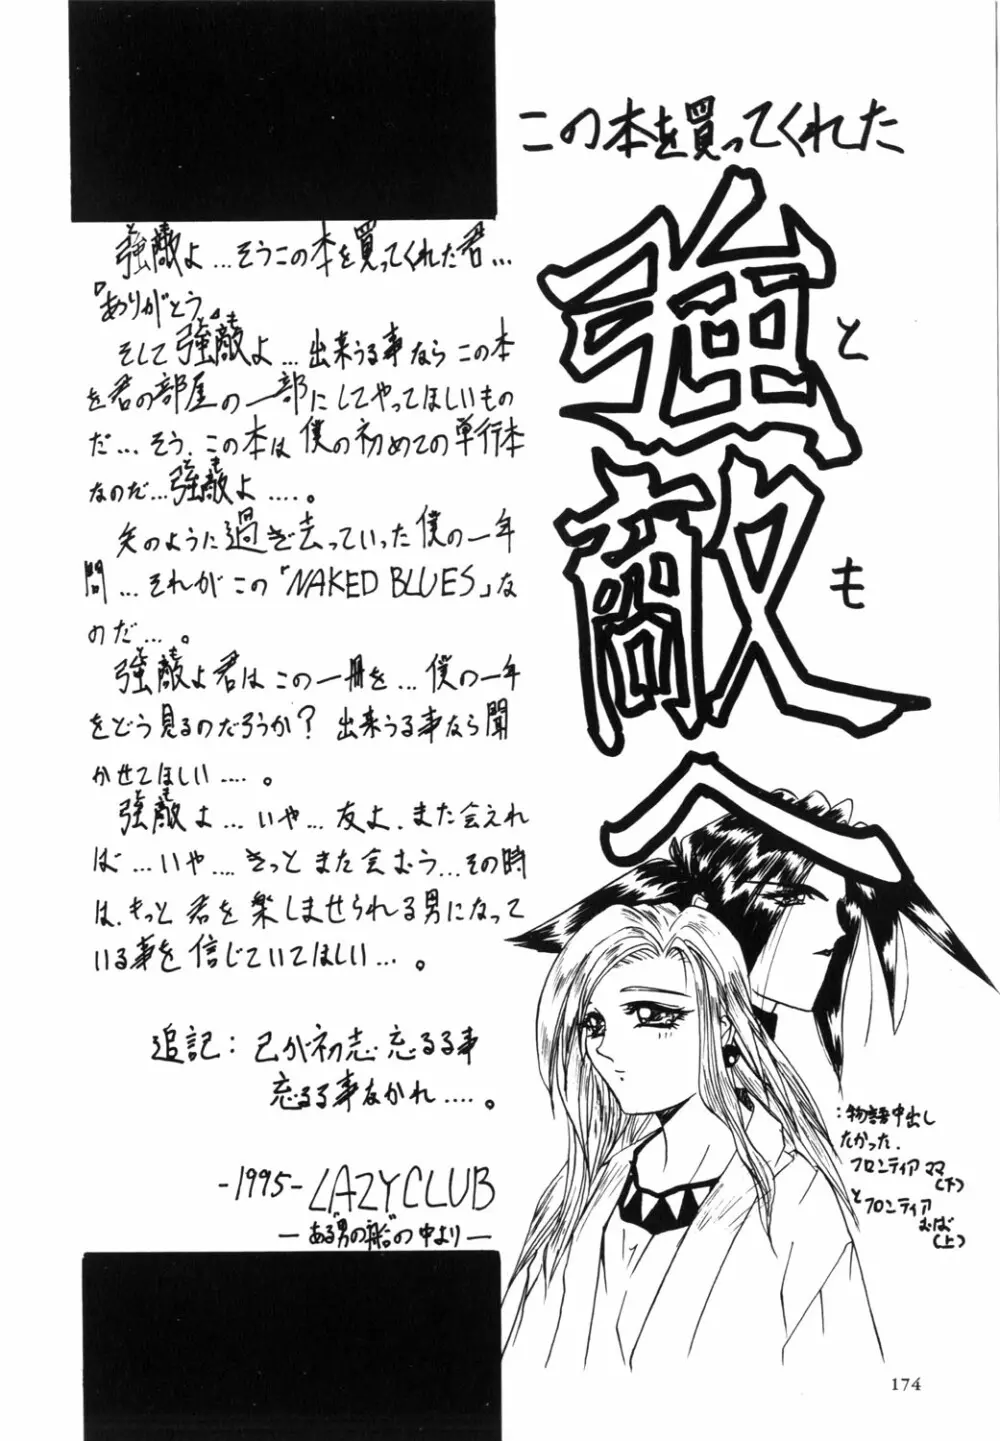 この本を買ってくれた
強敵へ
とも
強敵よ…そうこの本を買ってくれた君…
『ありがとう』
そして強敵よ…出来うる事ならこの本
を君の部屋の一部にしてやってほしいもの
だ…そう、この本は僕の初めての単行本
なのだ…強敵よ….。
矢のように過ぎ去っていった僕の一年
間…それがこの「NAKED BLUES」な
のだ…。
強敵よ君はこの一冊を…僕の一年
をどう見るのだろうか？出来うる事なら聞
かせてほしい….。
強敵よ…いや…友よ、また会えれ
ば…いや….きっとまた会おう…その時
は、もっと君を楽しませられる男になって
いる事を信じていてほしい…。
追記：己が初志、忘るる事
忘るる事なかれ….。
-1995- LAZYCLUB
—ある“男の船”の中より—
：物語中出し
たかった、
フロンティアママ
（下）
とフロンティア
むば
（上）
174